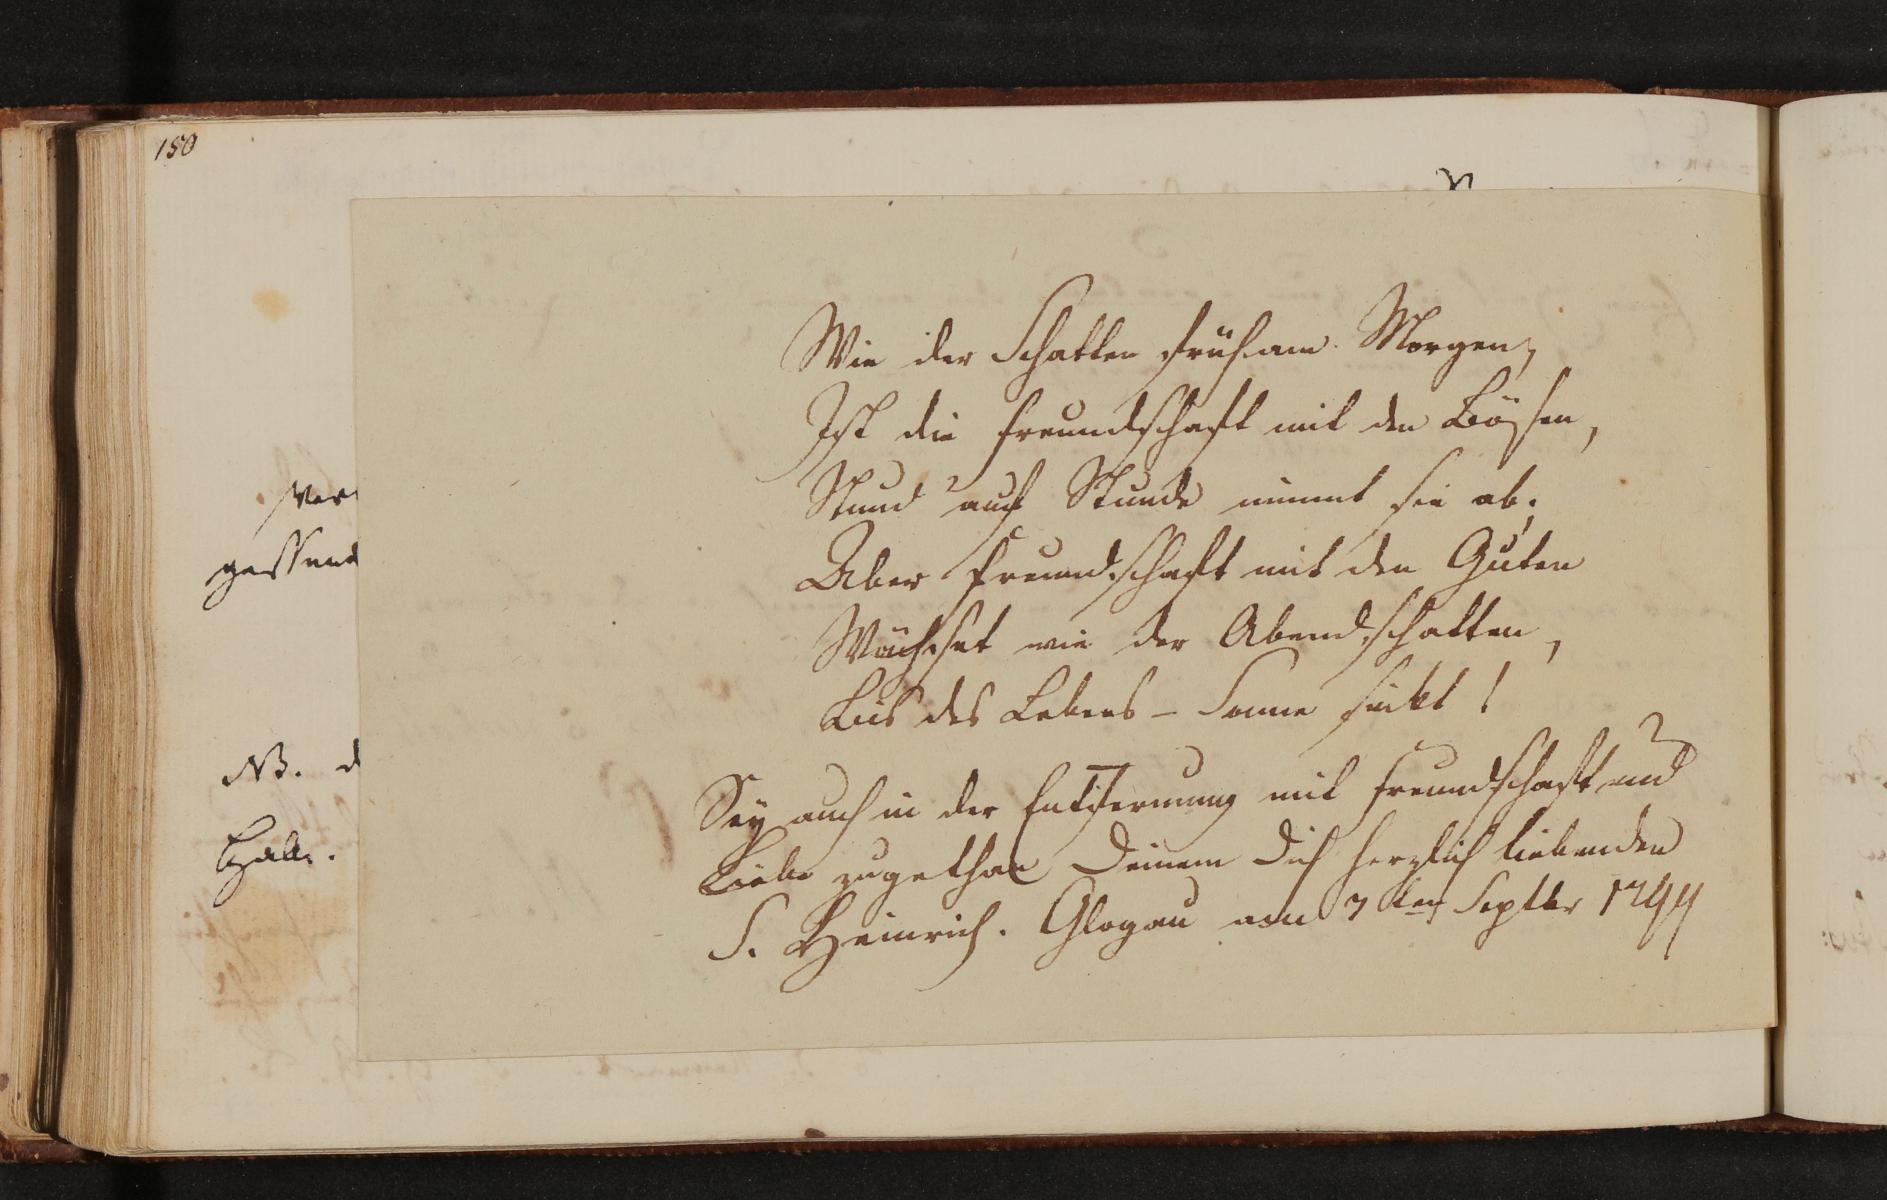 150
Wie der Schatten früh am Morgen,
Ist die Freundschaft mit den Bösen,
Stund' auf Stunde nimmt sie ab;
Aber Freundschaft mit den Guten
Wächset wie der Abendschatten,
Bis des Lebens-Sonne sinkt!
Sey auch in der Entfernung mit Freundschaft und
Liebe zugethan Deinem Dich herzlich liebenden
S. Heinrich. Glogau am 7ten Septbr 1799
NB. d